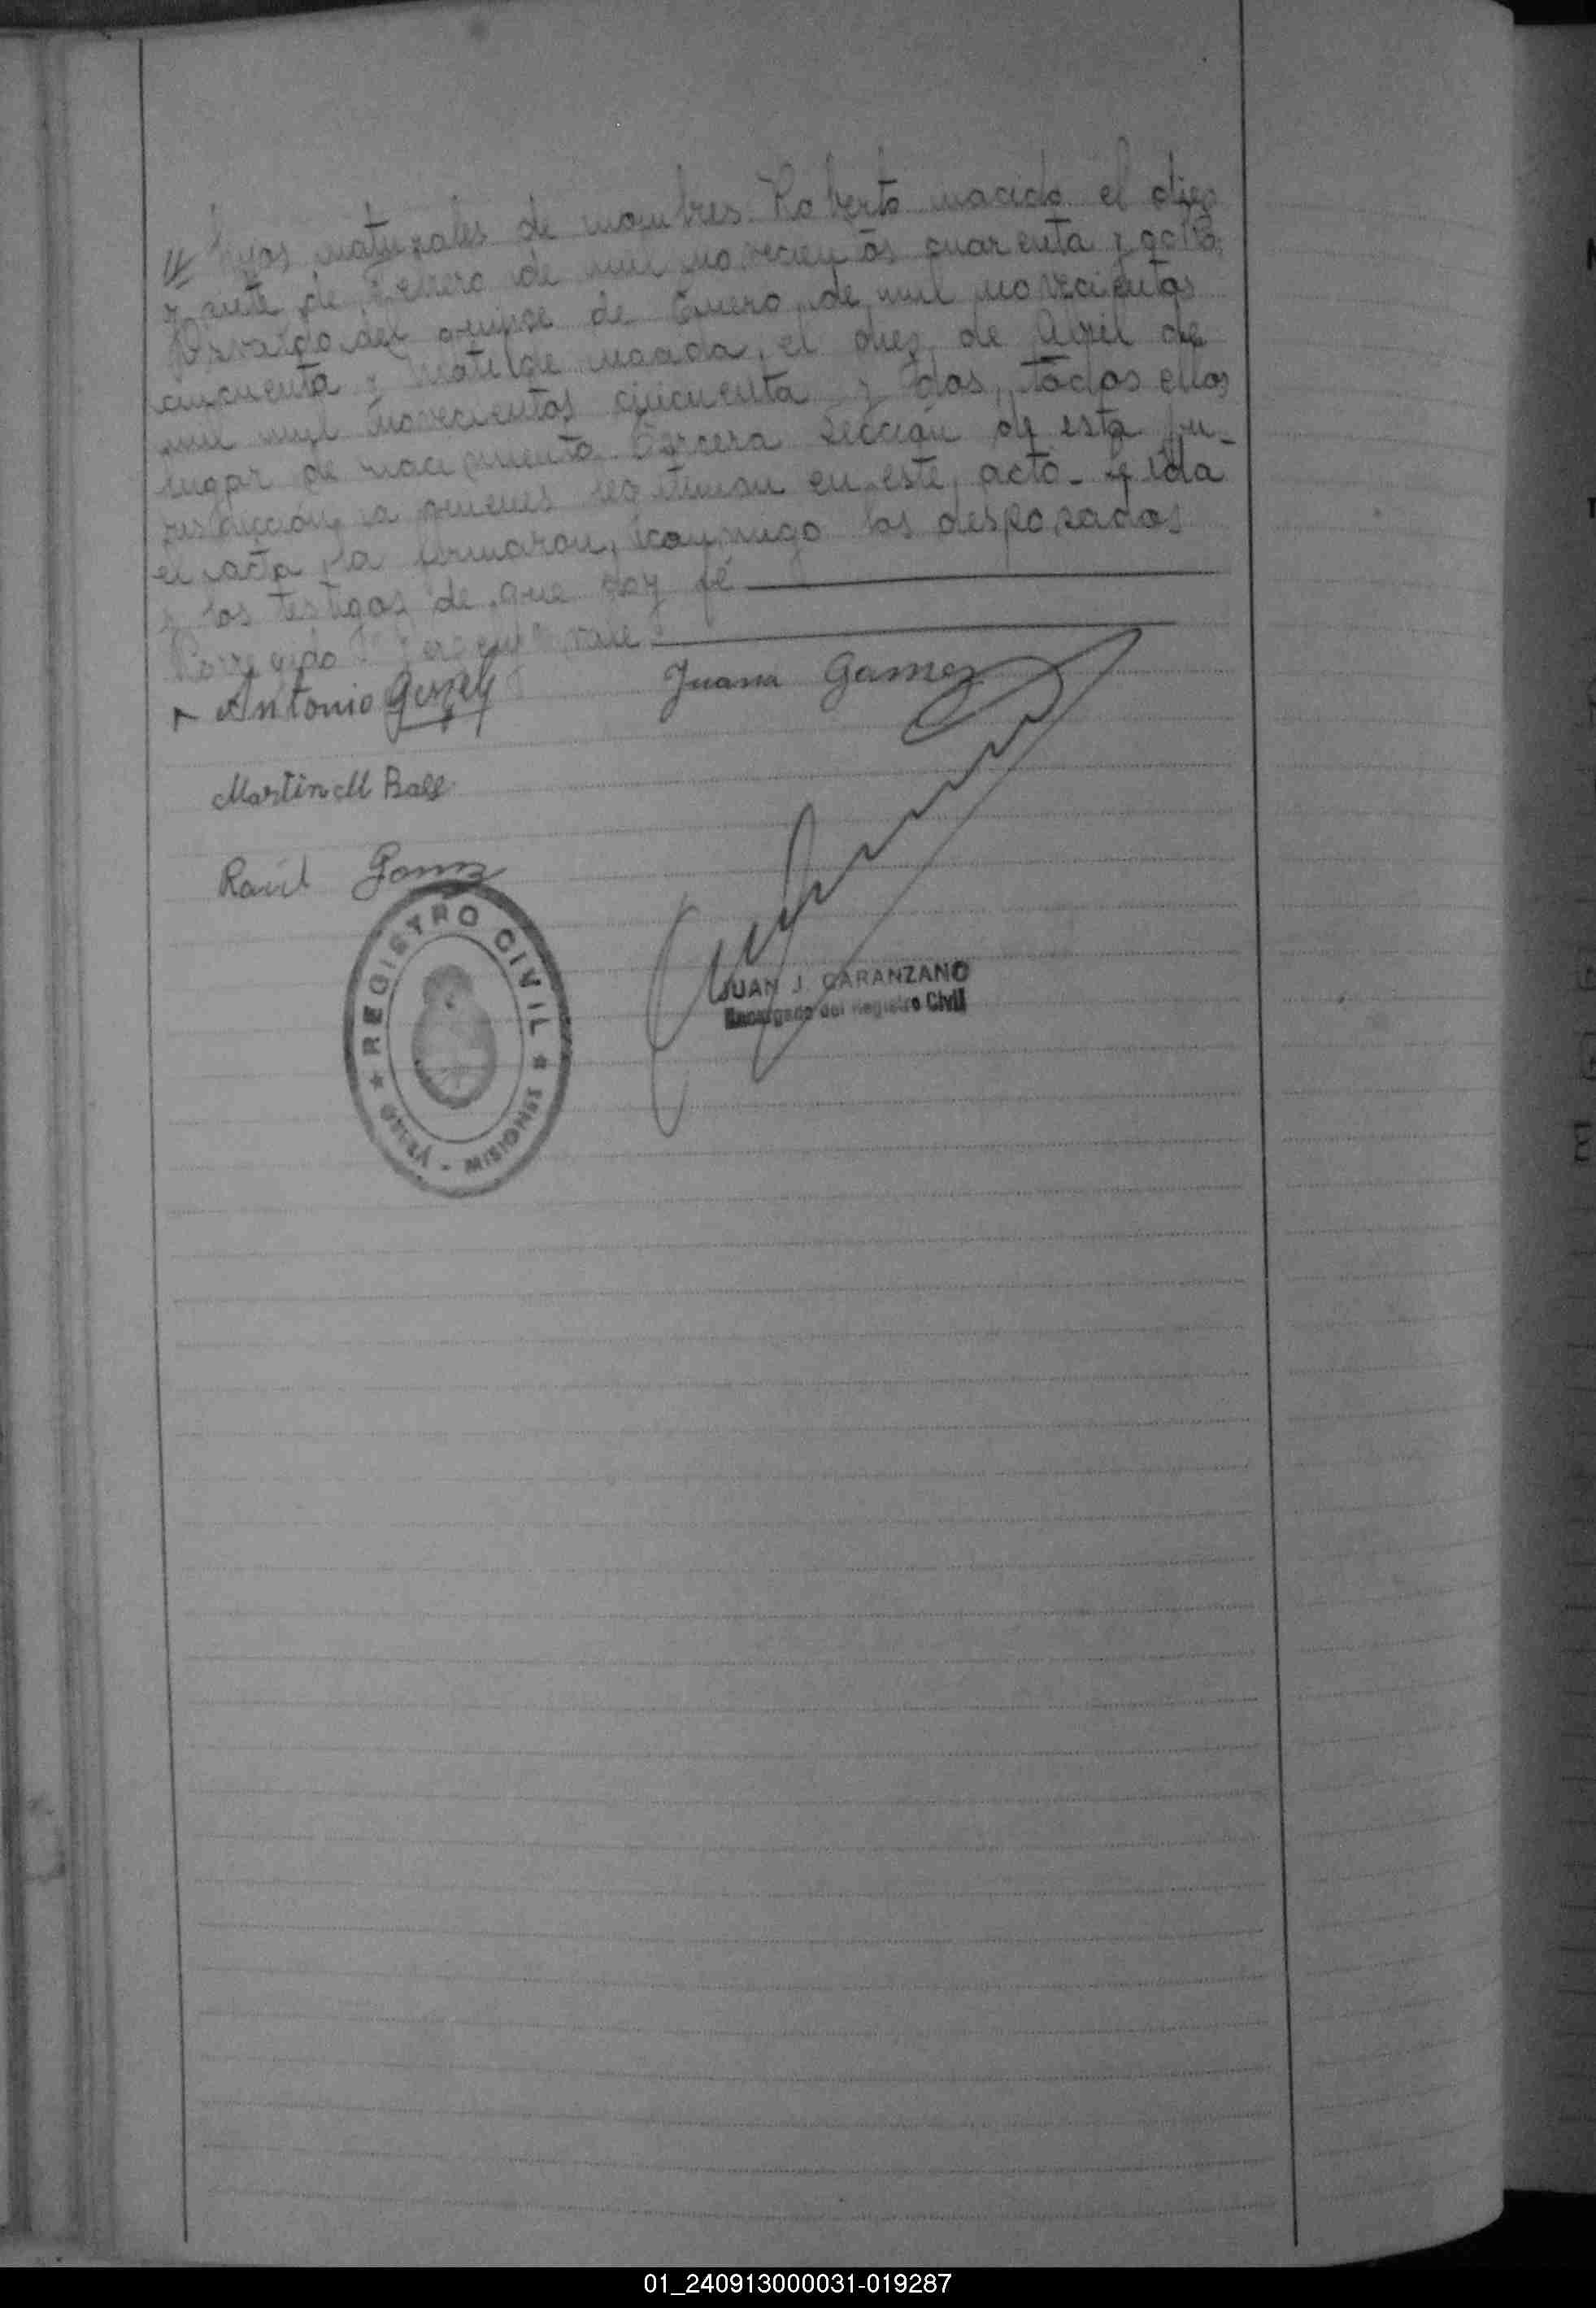 // hijos naturales de nombres Roberto nacido el diez
y siete de Febrero de mil novecientos cuarenta y ocho,
Osvaldo, el quince de Enero de mil novecientos
cincuenta y Matilde nacida el diez de Abril de
mil mil novecientos cincuenta y dos, todos ellos
lugar de nacimiento Tercera Sección de esta ju-
risdicción, a quienes legitiman en este acto - Leída
el acta la firmaron, conmigo los desposados
y los testigos de que doy fé
Corregido vale
Antonio
Juana Gamez
Martin M Bass
Raúl
REGISTRO CIVIL
OBERÁ - MISIONES
JUAN J. CARANZANO
Encargado del Registro Civil
01_240913000031-019287